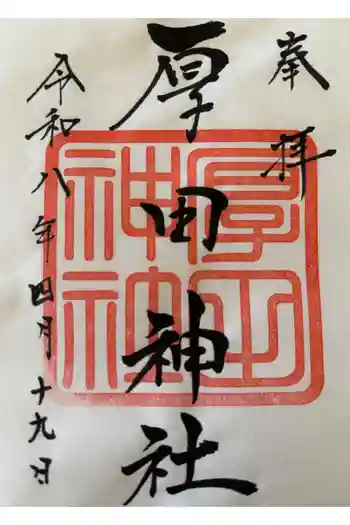 奉拝
厚田神社
令和八年四月十九日
厚田神社